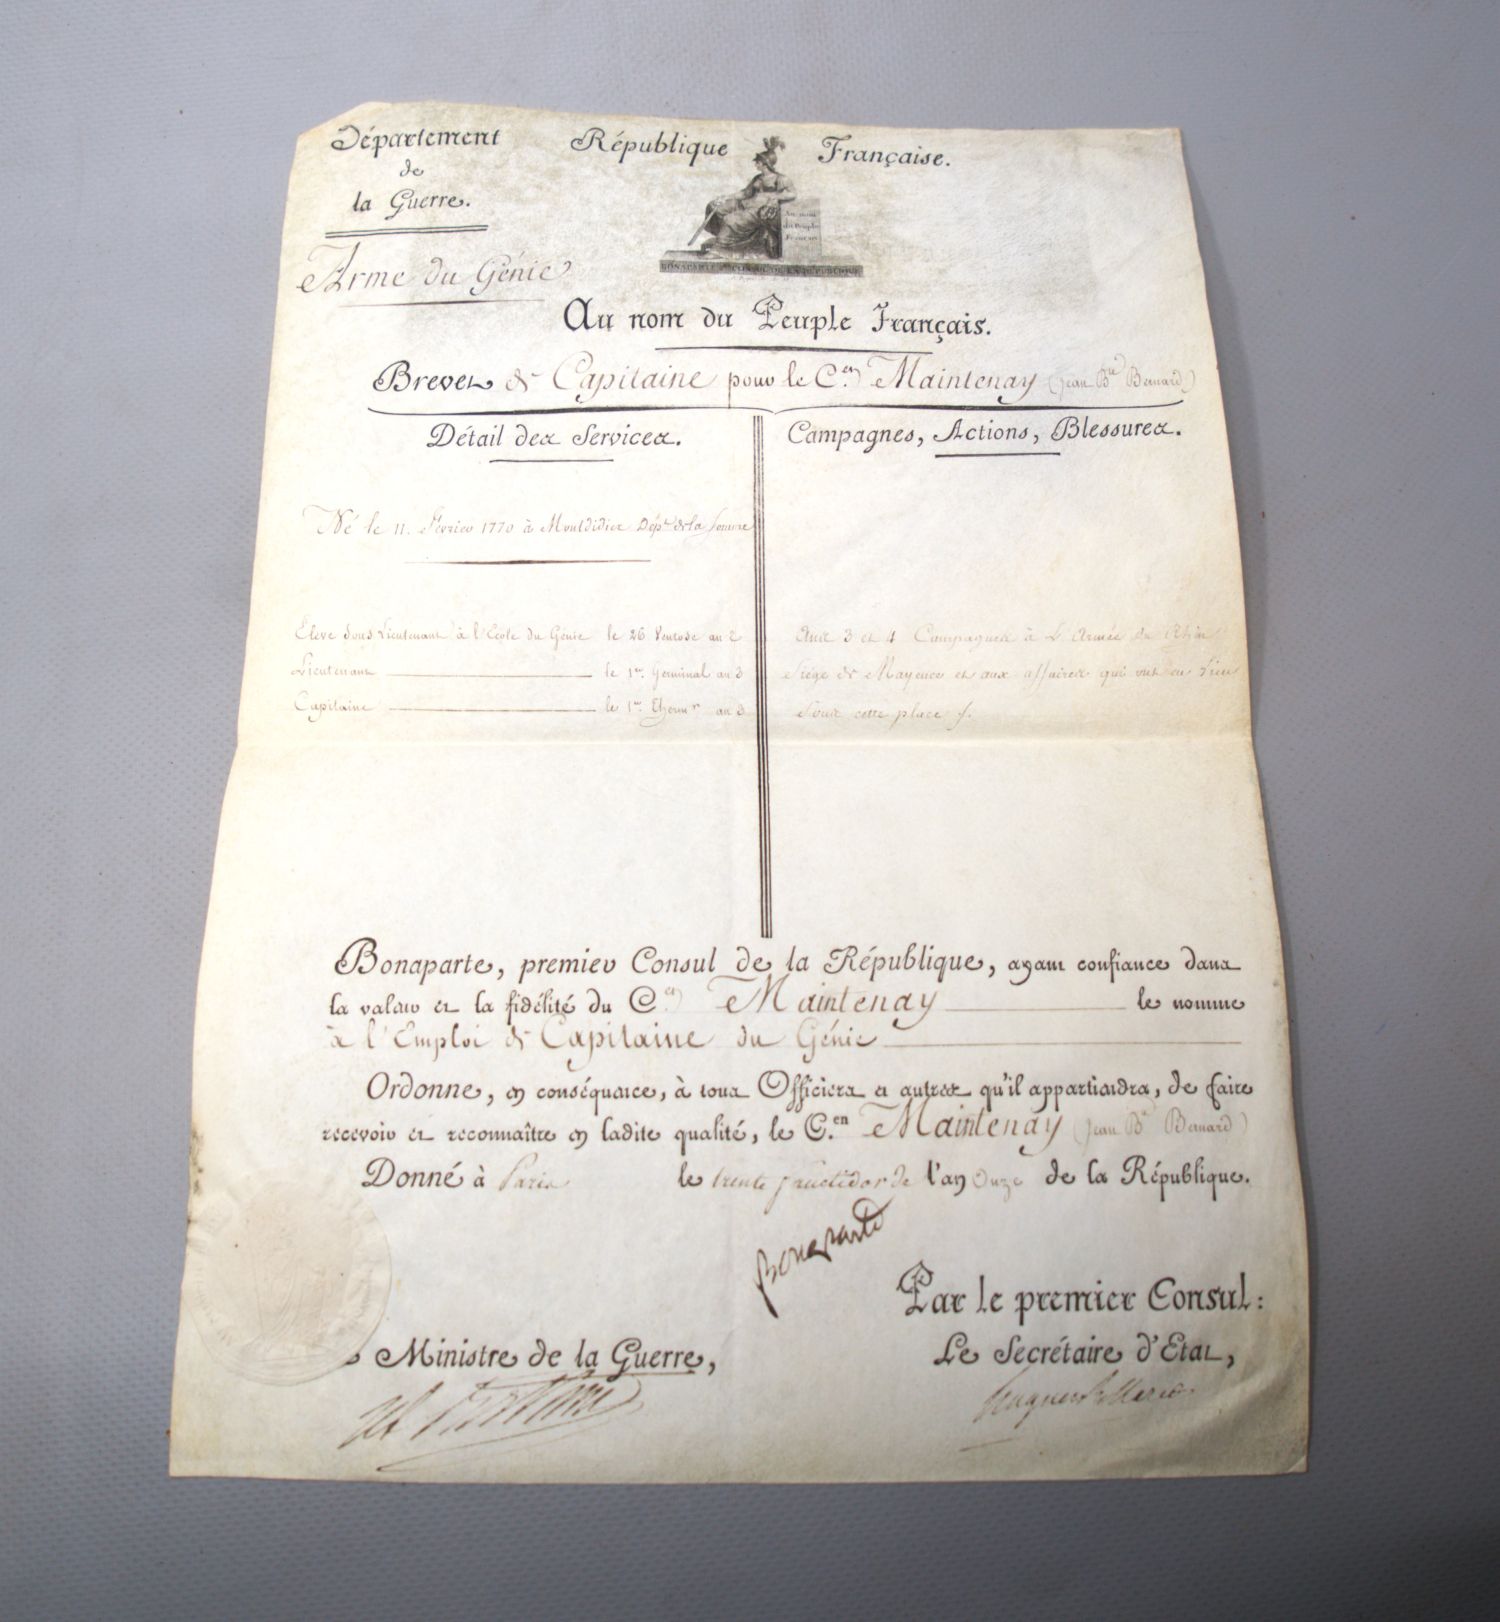 Département
de
la Guerre.
République Française.
Au nom
du Peuple
Français
BONAPARTE 1er CONSUL DE LA RÉPUBLIQUE
Arme du Génie
Au nom du Peuple Français.
Brevet de Capitaine pour le C.en Maintenay (Jean B.te Bernard)
Détail des Services.
Né le 11. Février 1770 à Montdidier Dép.t de la Somme
Elève Sous Lieutenant à l'Ecole du Génie le 26 Ventose an 2
Lieutenant le 1er. Germinal an 3
Capitaine le 1er. Therm.r an 3
Campagnes, Actions, Blessures.
Ans 3 et 4 Campagnes à L'Armée du Rhin
Siège de Mayence et aux affaires qui ont eu Lieu
Sous cette place
Bonaparte, premier Consul de la République, ayant confiance dans
la valeur et la fidélité du C.en Maintenay le nomme
à l'Emploi de Capitaine du Génie
Ordonne, en conséquence, à tous Officiers et autres qu'il appartiendra, de faire
recevoir et reconnaître en ladite qualité, le C.en Maintenay (Jean B.te Bernard)
Donné à Paris le trente fructidor de l'an Onze de la République.
Bonaparte
Par le premier Consul:
Ministre de la Guerre,
Le Secrétaire d'Etat,
Hugues B. Maret